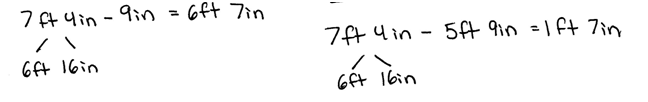 7ft 4in - 9in = 6ft 7in
6ft 16in
7ft 4in - 5ft 9in = 1ft 7in
6ft 16in